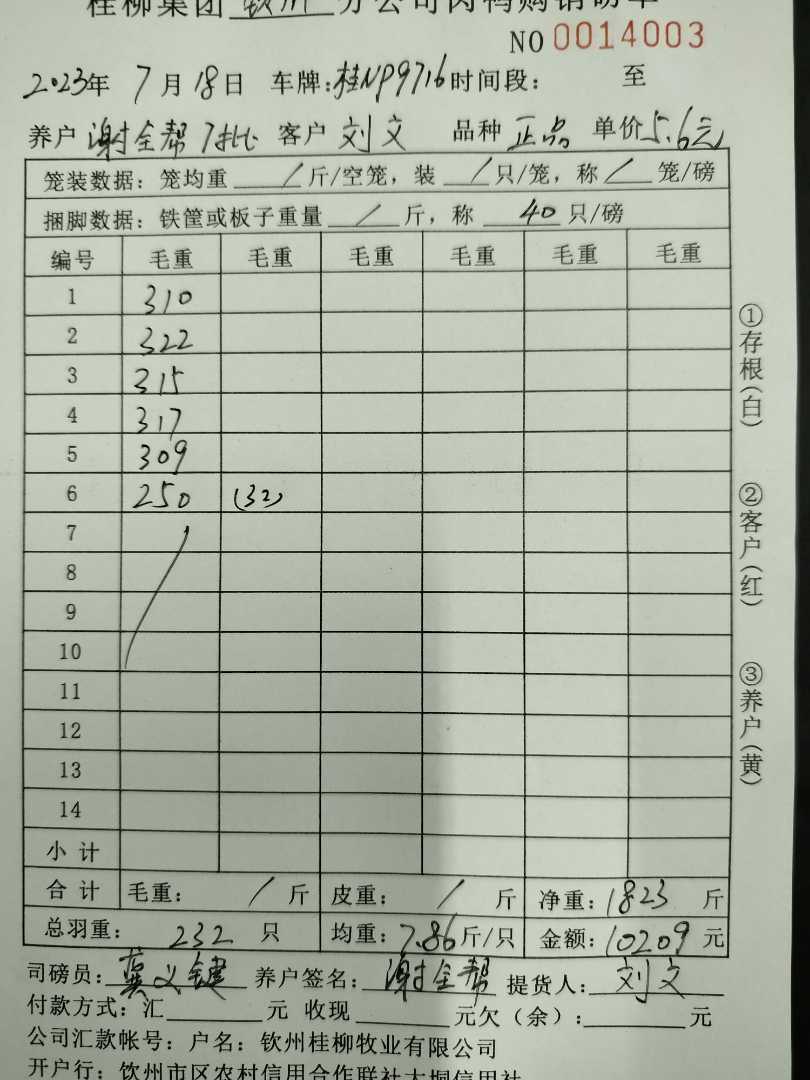 桂柳集团 钦州 分公司肉鸭购销磅单
NO 0014003
2023年 7月18日 车牌:桂NP9716 时间段: 至
养户 谢全帮 7批 客户 刘文 品种 正品 单价 5.6元
笼装数据: 笼均重 / 斤/空笼, 装 / 只/笼, 称 / 笼/磅
捆脚数据: 铁筐或板子重量 / 斤, 称 40 只/磅
编号 毛重 毛重 毛重 毛重 毛重 毛重
1 310
2 322
3 315
4 317
5 309
6 250 (32)
7
8
9
10
11
12
13
14
小计
合计 毛重: / 斤 皮重: / 斤 净重: 1823 斤
总羽重: 232 只 均重: 7.86 斤/只 金额: 10209 元
司磅员: 义键 养户签名: 谢全帮 提货人: 刘文
付款方式: 汇 元 收现 元欠(余): 元
公司汇款帐号: 户名: 钦州桂柳牧业有限公司
开户行: 钦州市区农村信用合作联社大垌信用社
①存根(白)
②客户(红)
③养户(黄)